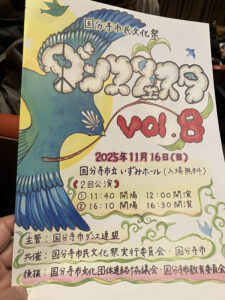 国分寺市民文化祭
ダンスフェスタ
vol.8
2025年11月16日(日)
国分寺市立 いずみホール(入場無料)
《2回公演》
① 11:40 開場 12:00 開演
② 16:10 開場 16:30 開演
主管:国分寺市ダンス連盟
共催:国分寺市民文化祭実行委員会・国分寺市
後援:国分寺市文化団体連絡協議会・国分寺市教育委員会